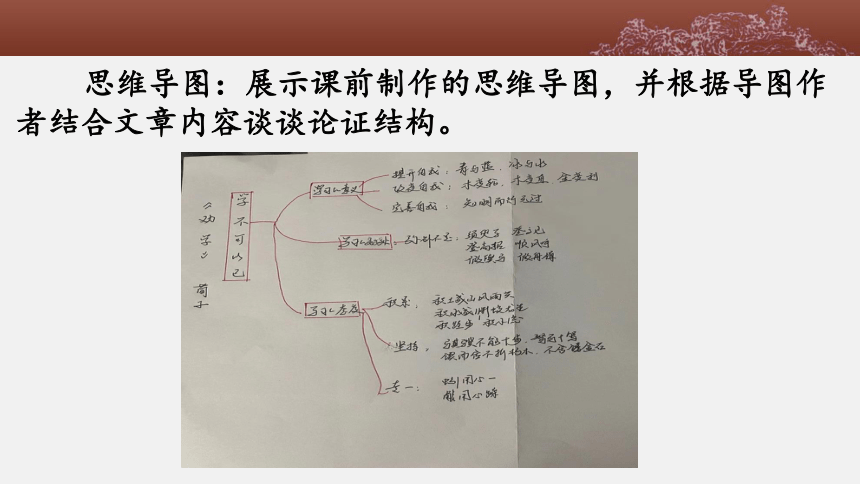 思维导图：展示课前制作的思维导图，并根据导图作
者结合文章内容谈谈论证结构。
《劝学》 荀子
学不可以已
学习意义
提升自我：青与蓝、冰与水
改变自我：木变轮、木变直、金变利
完善自我：知明而行无过
学习
弥补不足：须臾之 登高
登高招 顺风呼
假舆马 假舟楫
学习态度
积累：积土成山风雨兴
积水成渊蛟龙生
积跬步 积小流
坚持：骐骥不能十步，驽马十驾
锲而舍不折朽木，不舍镂金石
专一：蚓用心一
蟹用心躁